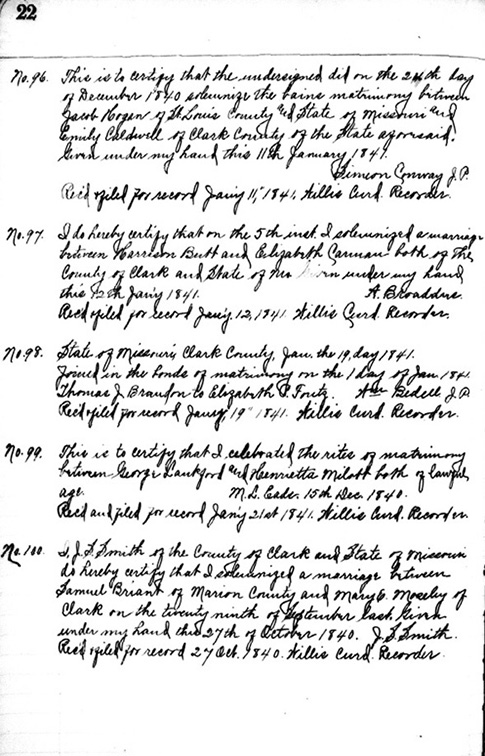 22
No. 96. This is to certify that the undersigned did on the 24th day
of December 1840 solemnize the bains matrimony between
Jacob Hogan of St. Louis County and State of Missouri and
Emily Caldwell of Clark County of the State aforesaid.
Given under my hand this 11th January 1841.
Simeon Conway J.P.
Rec'd & filed for record Jan'y 11, 1841. Willis Curd. Recorder.
No. 97. I do hereby certify that on the 5th inst. I solemnized a marriage
between Harrison Butt and Elizabeth Carman both of the
County of Clark and State of Mo Given under my hand
this 12th Jan'y 1841. A. Broaddus.
Rec'd & filed for record Jan'y. 12, 1841 Willis Curd. Recorder.
No. 98. State of Missouri, Clark County, Jan. the 19, day 1841.
Joined in the bonds of matrimony on the 1 day of Jan 1841.
Thomas J. Brandon to Elizabeth P. Foutz. Wm Bedell J.P.
Rec'd & filed for record Jan'y 19" 1841. Willis Curd. Recorder.
No. 99. This is to certify that I celebrated the rites of matrimony
between George Lankford and Henrietta Milott both of lawful
age. M. L. Eads. 15th Dec. 1840.
Rec'd and filed for record Jan'y 21st 1841. Willis Curd. Recorder.
No. 100. I, J. S. Smith of the County of Clark and State of Missouri
do hereby certify that I solemnized a marriage between
Samuel Briant of Marion County and Mary E. Moseley of
Clark on the twenty ninth of September last. Given
under my hand this 27th of October 1840. J. S. Smith.
Rec'd & filed for record 27 Oct. 1840. Willis Curd. Recorder.